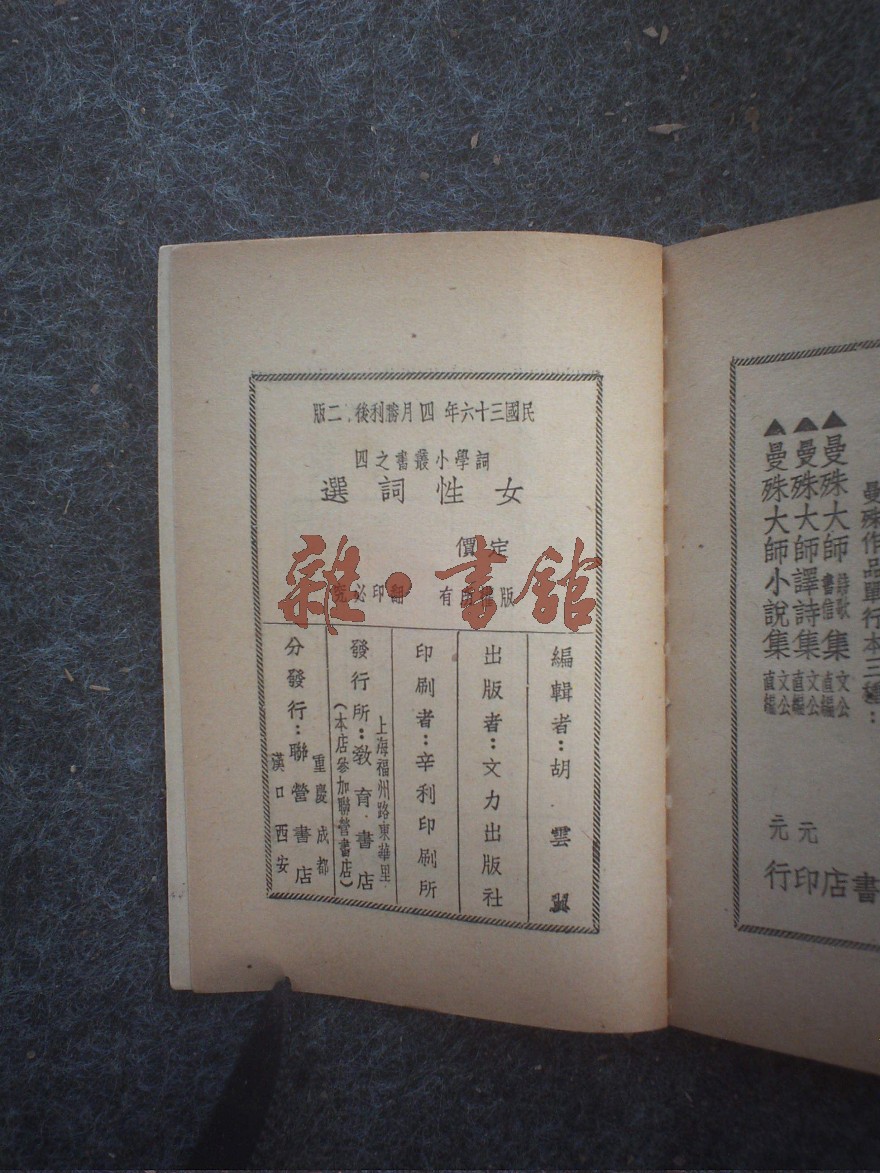 民國三十六年四月勝利後二版
詞學小叢書之四
女性詞選
定價
版權所有 翻印必究
雜·書館
編輯者：胡雲翼
出版者：文力出版社
印刷者：辛利印刷所
發行所：教育書店
上海福州路東華里
（本店參加聯營書店）
分發行：聯營書店
重慶成都
漢口西安
曼殊作品單行本三種：
▲曼殊大師詩歌書信集 文公直編
▲曼殊大師譯詩集 文公直編 元
▲曼殊大師小說集 文公直編 元
書店印行